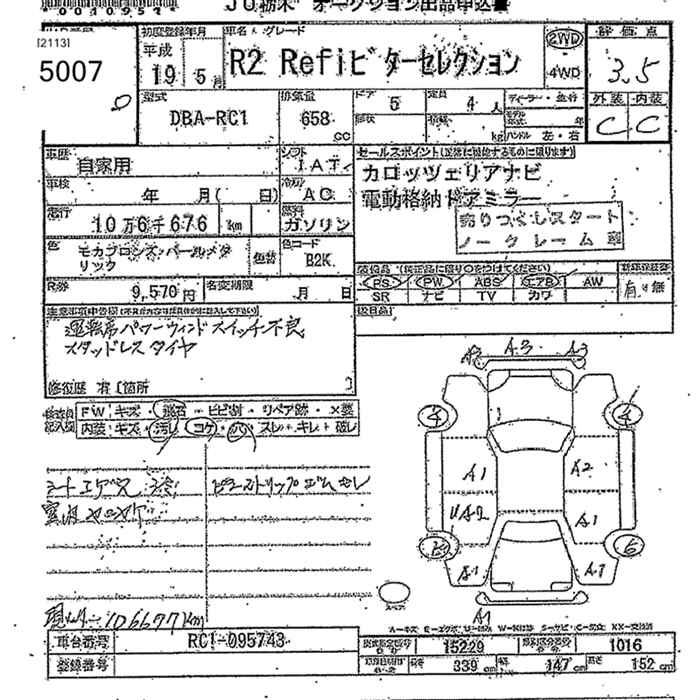 JU栃木 オークション出品申込書
5007
初度登録年月
平成 19年 5月
車名 グレード
R2 Refiビターセレクション
2WD
4WD
評価点
3.5
外装 内装
C C
型式
DBA-RC1
排気量
658
cc
ドア
5
定員
4人
ハンドル 左・右
車歴
自家用
シフト
IAT
車検
年 月( 日)
冷房
AC
走行
10万6千676 km
燃料
ガソリン
色
モカブロンズ・パールメタリック
色替
色コード
B2K
R券
9,570円
名変期限
月 日
セールスポイント(正常に機能するものに限ります)
カロッツェリアナビ
電動格納ドアミラー
売りつくしスタート
ノークレーム車
PS PW ABS エアB AW
SR ナビ TV カワ
有・無
後日品
運転席パワーウィンドスイッチ不良
スタッドレスタイヤ
修復歴 有 [箇所 ]
FW キズ・飛石・ヒビ割・リペア跡・×要
内装 キズ・汚れ・コゲ・穴・スレ・キレ・破レ
A3
A1
A2
A1
A1
A1
A1
スペア
106677km
車台番号
RC1-095743
登録番号
15229
1016
長さ 339cm 幅 147cm 高さ 152cm